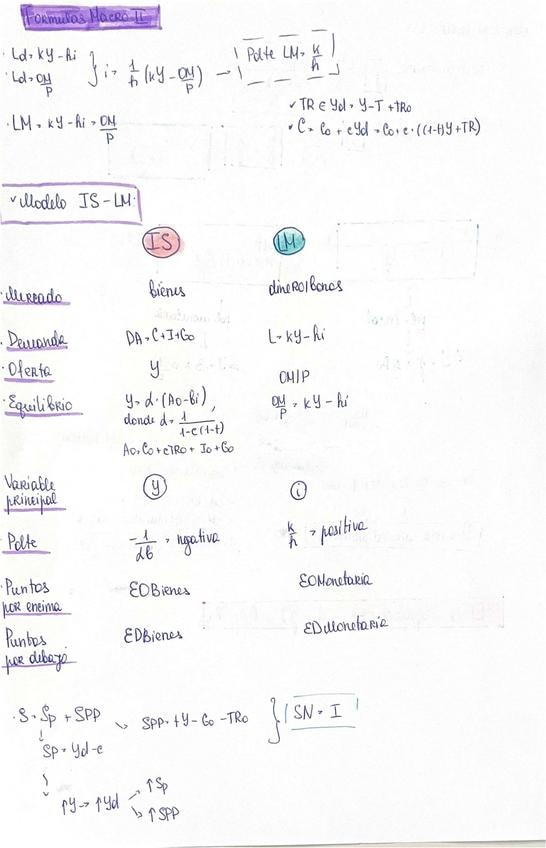 Formulas Macro II
· Ld = kY - hi
· Ld = OM/P
} i = 1/h (kY - OM/P) → Pdte LM = k/h
✓ TR ∈ Yd = Y - T + TRo
· LM = kY - hi = OM/P
✓ C = Co + cYd = Co + c · ((1-t)Y + TR)
✓ Modelo IS - LM:
IS LM
· Mercado bienes dinero/bonos
· Demanda DA = C + I + Go L = kY - hi
· Oferta Y OM/P
· Equilibrio Y = α · (Ao - bi), OM/P = kY - hi
donde α = 1/1 - c(1-t)
Ao = Co + cTRo + Io + Go
Variable principal Y i
· Pdte -1/αb = negativa k/h = positiva
· Puntos por encima EOBienes EOMonetaria
Puntos por debajo EDBienes EDMonetaria
· S = Sp + SPP ↘ SPP = tY - Go - TRo } SN = I
↓
Sp = Yd - c
↑Y → ↑Yd → ↑Sp
↘ ↑SPP